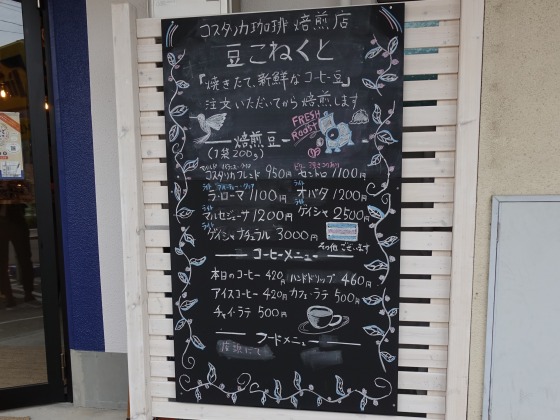 コスタリカ珈琲焙煎店
豆こねくと
『焼きたて、新鮮なコーヒー豆』
注文いただいてから焙煎します
FRESH
Roast
焙煎豆
(1袋200g)
コスタリカブレンド 950円 セントロ 1100円
ラ・ローマ 1100円 オバタ 1200円
マルセジューナ 1200円 ゲイシャ 2500円
ゲイシャ ナチュラル 3000円
その他ございます
コーヒーメニュー
本日のコーヒー 420円 ハンドドリップ 460円
アイスコーヒー 420円 カフェ・ラテ 500円
チャイ・ラテ 500円
フードメニュー